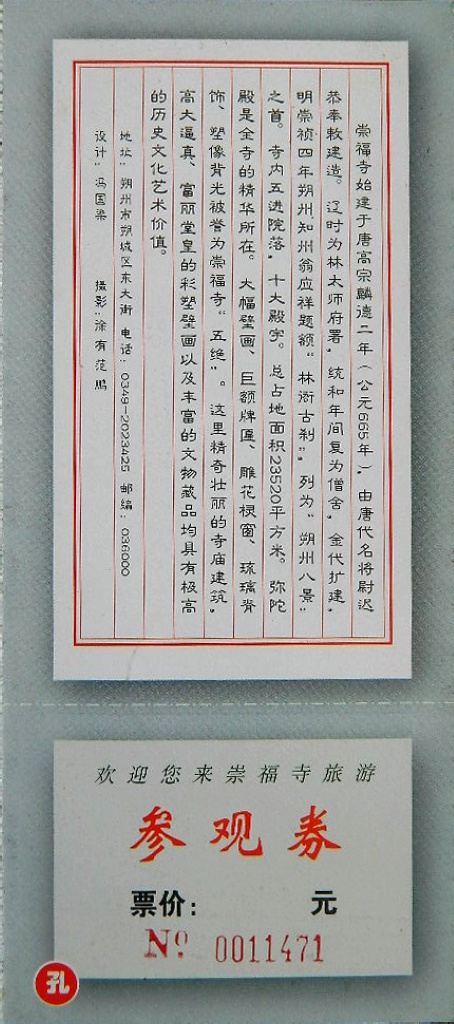 崇福寺始建于唐高宗麟德二年(公元665年),由唐代名将尉迟
恭奉敕建造。辽时为林太师府署,统和年间复为僧舍,金代扩建,
明崇祯四年朔州知州翁应祥题额“林衙古刹”,列为“朔州八景”
之首。寺内五进院落,十大殿宇。总占地面积23520平方米。弥陀
殿是全寺的精华所在。大幅壁画、巨额牌匾、雕花棂窗、琉璃脊
饰、塑像背光被誉为崇福寺“五绝”。这里精奇壮丽的寺庙建筑,
高大逼真、富丽堂皇的彩塑壁画以及丰富的文物藏品均具有极高
的历史文化艺术价值。
地址:朔州市朔城区东大街 电话:0349-2023425 邮编:036000
设计:冯国梁 摄影:涂有范 鹏
欢迎您来崇福寺旅游
参观券
票价: 元
Nº 0011471
孔